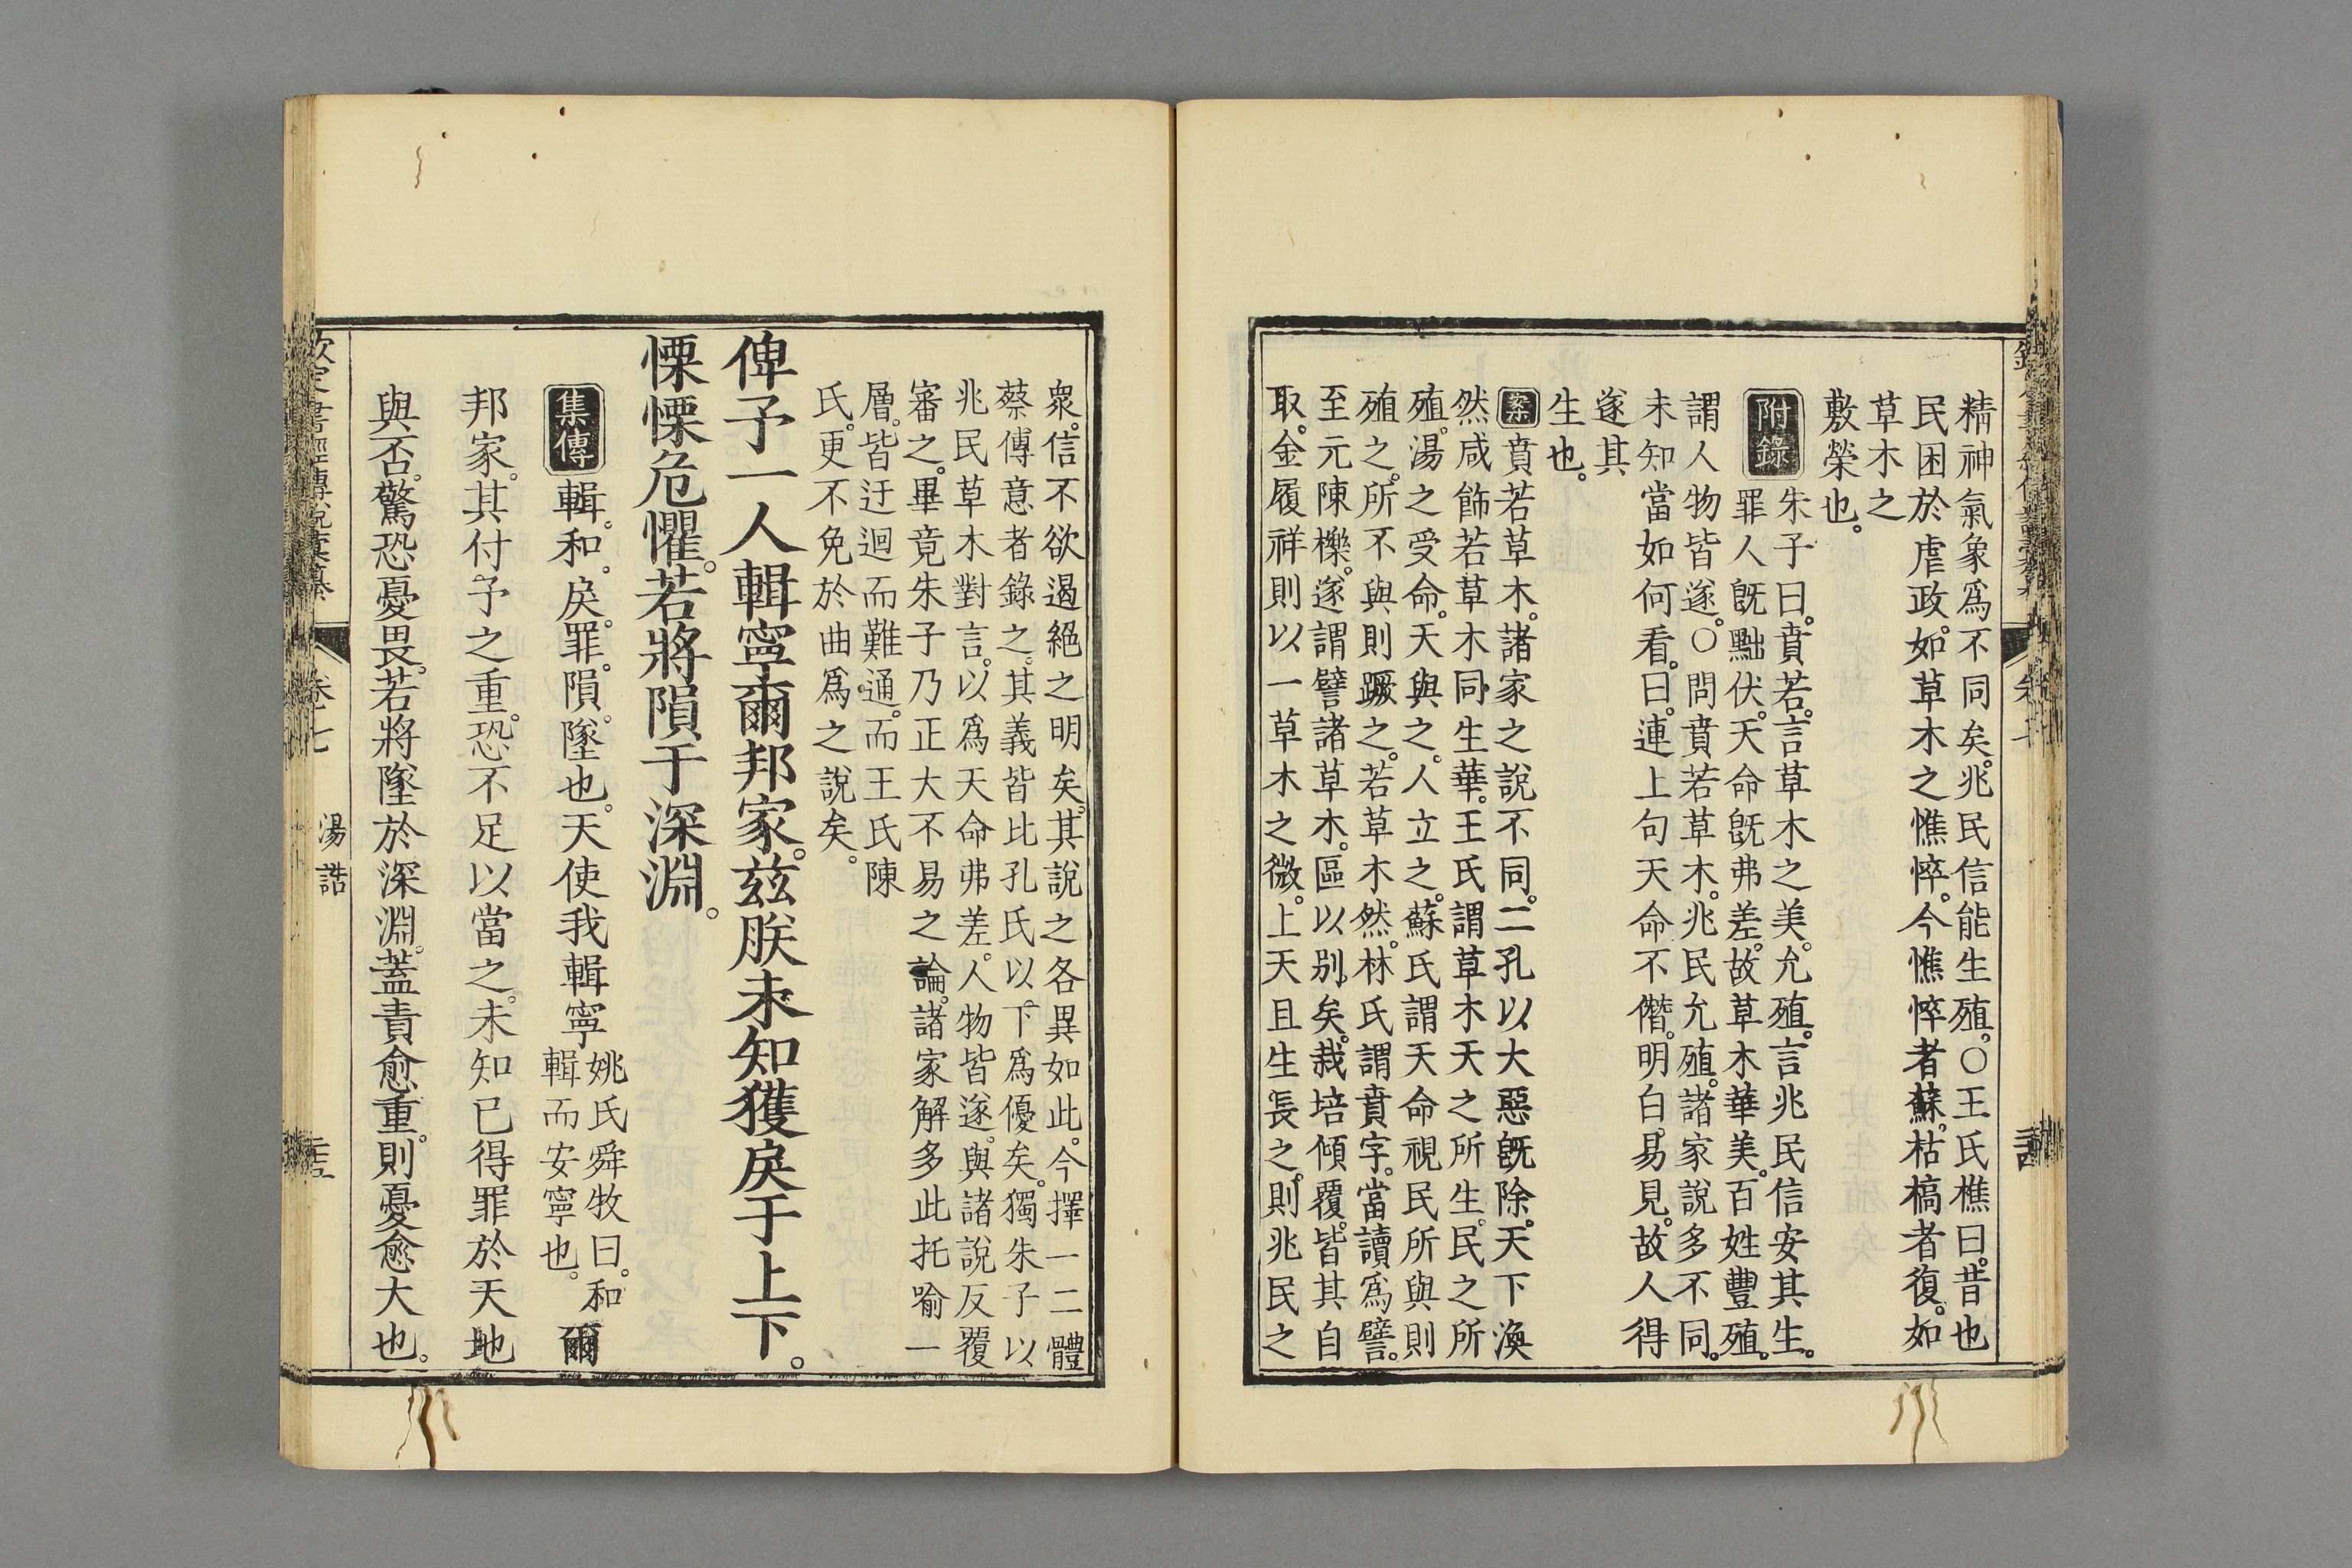 精神氣象爲不同矣。兆民信能生殖。○王氏樵曰。昔也
民困於虐政。如草木之憔悴。今憔悴者蘇。枯槁者復。如
草木之
敷榮也。
附錄
朱子曰。賁若。言草木之美。允殖。言兆民信安其生。
罪人旣黜伏。天命旣弗差。故草木華美。百姓豐殖。
謂人物皆遂。○問賁若草木。兆民允殖。諸家說多不同。
未知當如何看。曰。連上句天命不僭。明白易見。故人得
遂其
生也。
案賁若草木。諸家之說不同。二孔以大惡旣除。天下渙
然咸飾若草木同生華。王氏謂草木天之所生。民之所
殖。湯之受命。天與之。人立之。蘇氏謂天命視民所與則
殖之。所不與則蹶之。若草木然。林氏謂賁字。當讀爲譬。
至元陳櫟。遂謂譬諸草木。區以别矣。栽培傾覆。皆其自
取。金履祥則以一草木之微。上天且生長之。則兆民之
衆。信不欲遏絕之明矣。其說之各異如此。今擇一二體
蔡傳意者錄之。其義皆比孔氏以下爲優矣。獨朱子以
兆民草木對言。以爲天命弗差。人物皆遂。與諸說反覆
審之。畢竟朱子乃正大不易之論。諸家解多此托喻一
層。皆迂迴而難通。而王氏陳
氏。更不免於曲爲之說矣。
俾予一人輯寧爾邦家。茲朕未知獲戾于上下。
慄慄危懼。若將隕于深淵。
集傳輯。和。戾。罪。隕。墜也。天使我輯寧姚氏舜牧曰。和輯而安寧也。爾
邦家。其付予之重。恐不足以當之。未知已得罪於天地
與否。驚恐憂畏。若將墜於深淵。蓋責愈重。則憂愈大也。
欽定書經傳說彙纂
卷七
湯誥